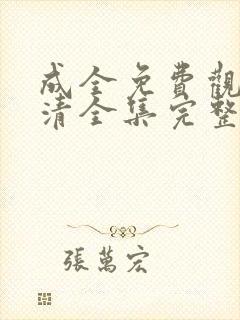 成全免費觀
清全集完整
張萬宏